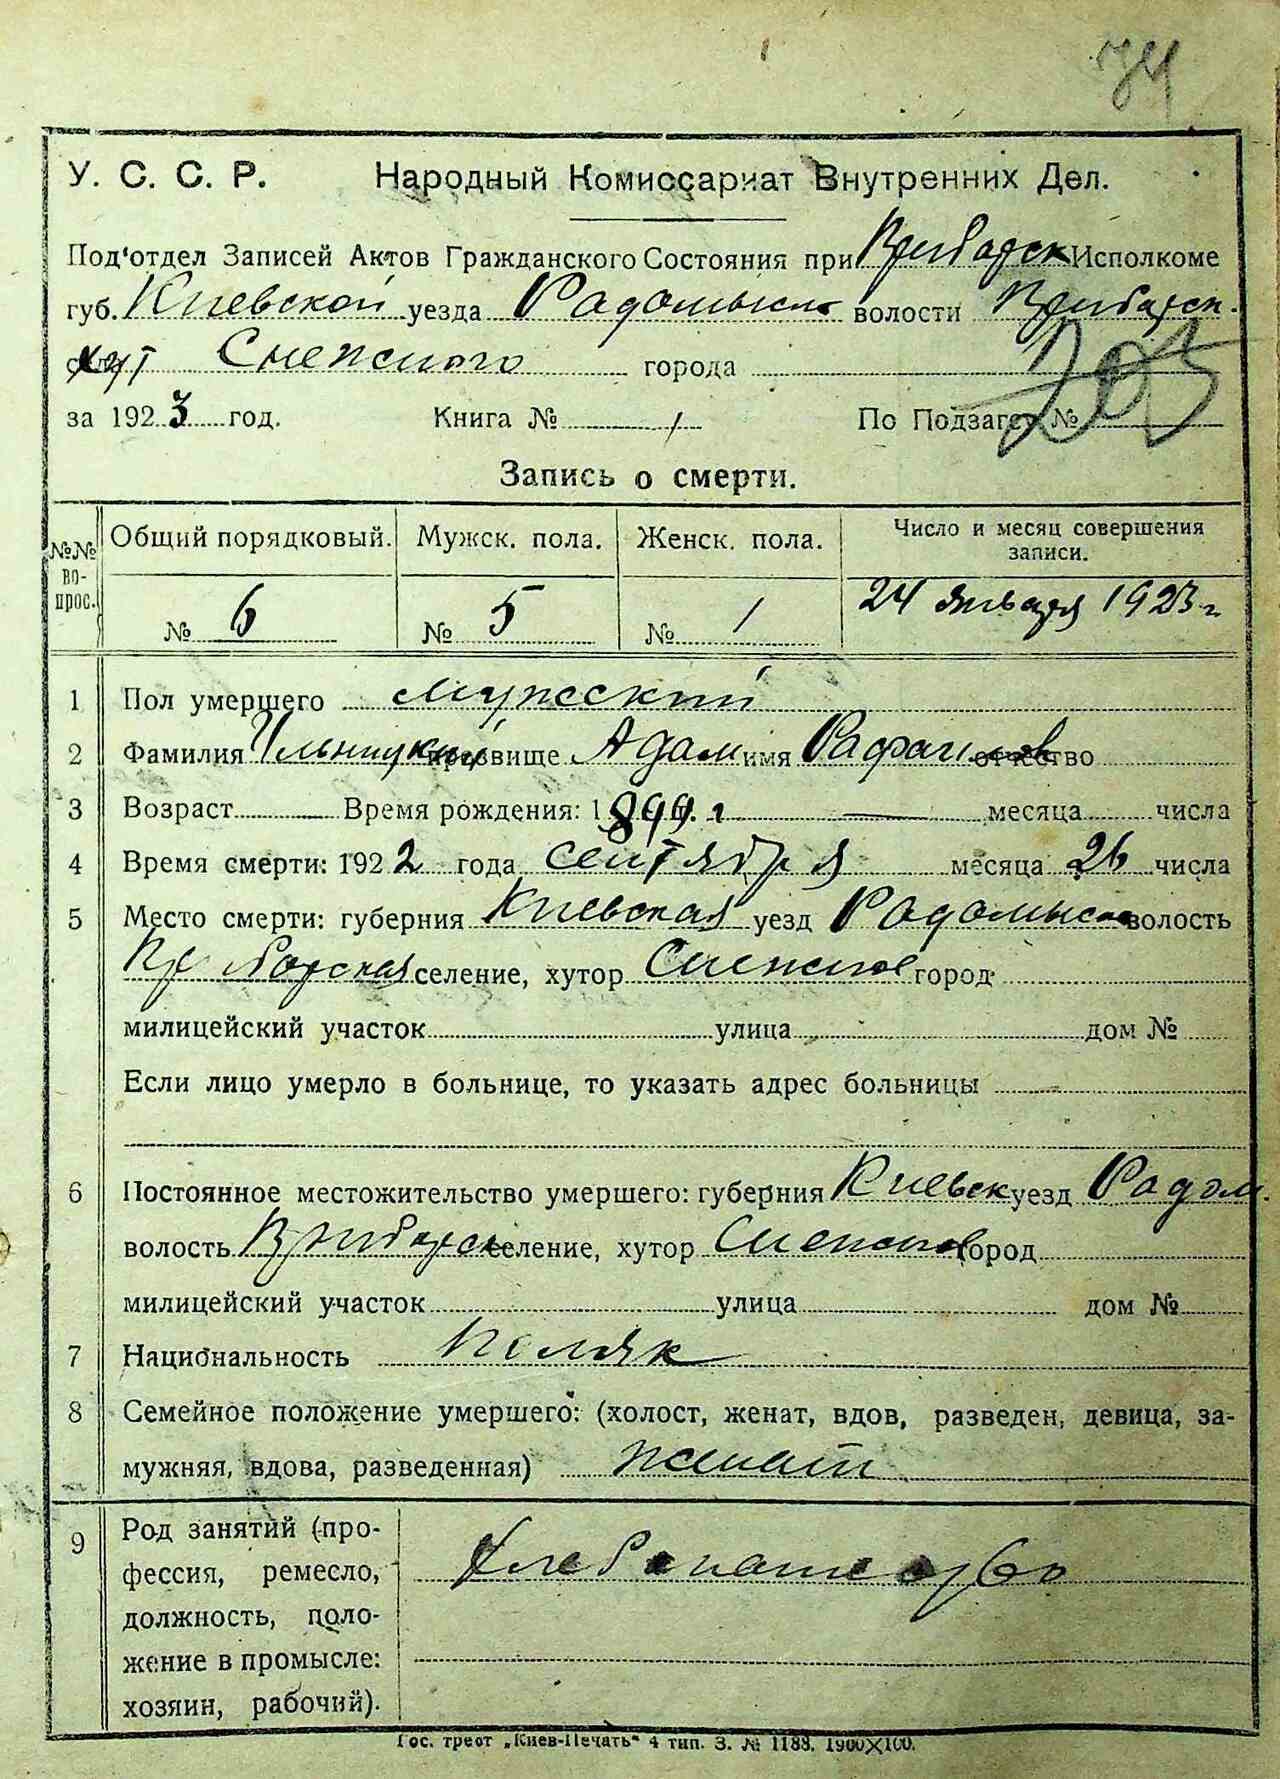 74
У. С. С. Р. Народный Комиссариат Внутренних Дел.
Под'отдел Записей Актов Гражданского Состояния при Прибарск Исполкоме
губ. Киевской уезда Радомысл волости Прибарск.
хут Снежного города
за 1923 год. Книга № 1 По Подзагсу №
205
Запись о смерти.
№№ во-прос. Общий порядковый. Мужск. пола. Женск. пола. Число и месяц совершения записи.
№ 6 № 5 № 1 24 января 1923 г
1 Пол умершего мужеский
2 Фамилия Ильницкий прозвище Адам имя Рафаилов отчество
3 Возраст Время рождения: 1899 г месяца числа
4 Время смерти: 1922 года сентября месяца 26 числа
5 Место смерти: губерния Киевская уезд Радомысл волость
Прибарская селение, хутор Снежное город
милицейский участок улица дом №
Если лицо умерло в больнице, то указать адрес больницы
6 Постоянное местожительство умершего: губерния Киевск уезд Радом.
волость Прибарск селение, хутор Снежное город
милицейский участок улица дом №
7 Национальность поляк
8 Семейное положение умершего: (холост, женат, вдов, разведен, девица, за-
мужняя, вдова, разведенная) женат
9 Род занятий (про-
фессия, ремесло, хлебопашество
должность, поло-
жение в промысле:
хозяин, рабочий).
Гос. трест „Киев-Печать" 4 тип. З. № 1188. 1900X100.